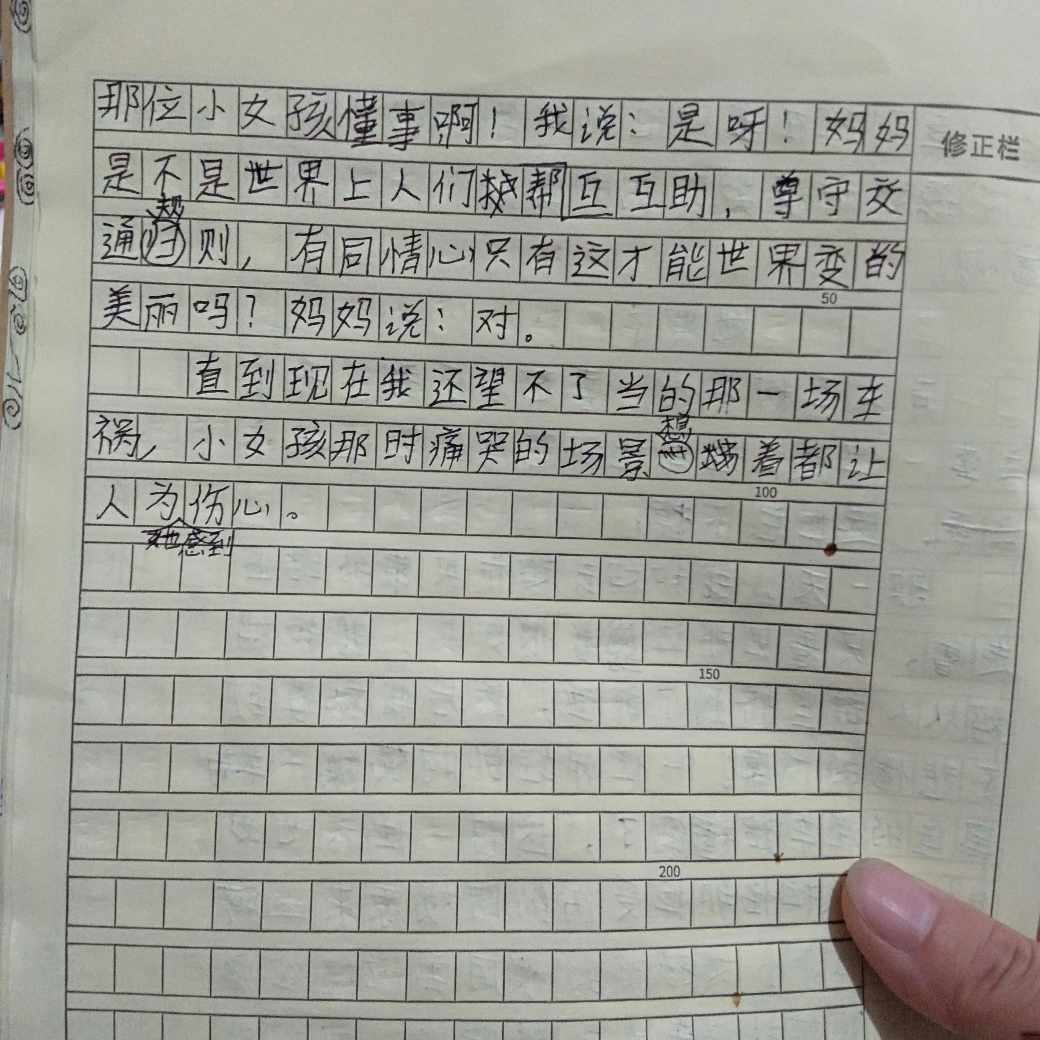 那位小女孩懂事啊！我说：是呀！妈妈
修正栏
是不是世界上人们帮互互助，尊守交
通则，有同情心只有这才能世界变的
50
美丽吗？妈妈说：对。
直到现在我还望不了当的那一场车
想
祸，小女孩那时痛哭的场景着都让
100
人为伤心。
她感到
150
200